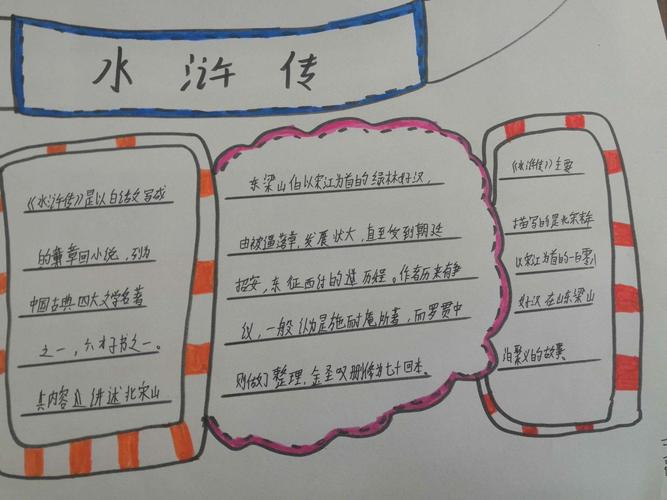 水浒传
《水浒传》是以白话文写成
的章回小说，列为
中国古典四大文学名著
之一，六才子书之一。
其内容讲述北宋山
东梁山伯以宋江为首的绿林好汉，
由被逼落草，发展壮大，直至受到朝廷
招安，东征西讨的历程。作者历来有争
议，一般认为是施耐庵所著，而罗贯中
则做了整理，金圣叹删修为七十回本。
《水浒传》主要
描写的是北宋末年
以宋江为首的一百零八
好汉在山东梁山
泊聚义的故事